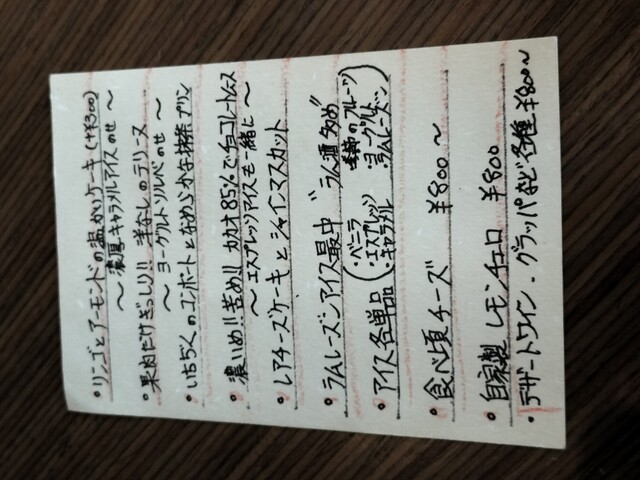 ・リンゴとアーモンドの温かいケーキ(+¥300)
〜濃厚キャラメルアイスのせ〜
・果肉だけぎっしり!! 洋なしのテリーヌ
〜ヨーグルトソルベのせ〜
・いちぢくのコンポートとなめらかな抹茶プリン
・濃いめ!!苦め!!カカオ85%でチョコレートムース
〜エスプレッソアイスも一緒に〜
・レアチーズケーキとシャインマスカット
・ラムレーズンアイス最中 "ラム酒多め"
・アイス各単品(・バニラ ・季節のフルーツ
・エスプレッソ ・ヨーグルト
・キャラメル ・ラムレーズン)
・食べ頃チーズ ¥800〜
・自家製レモンチェロ ¥800
・デザートワイン・グラッパなど各種¥800〜